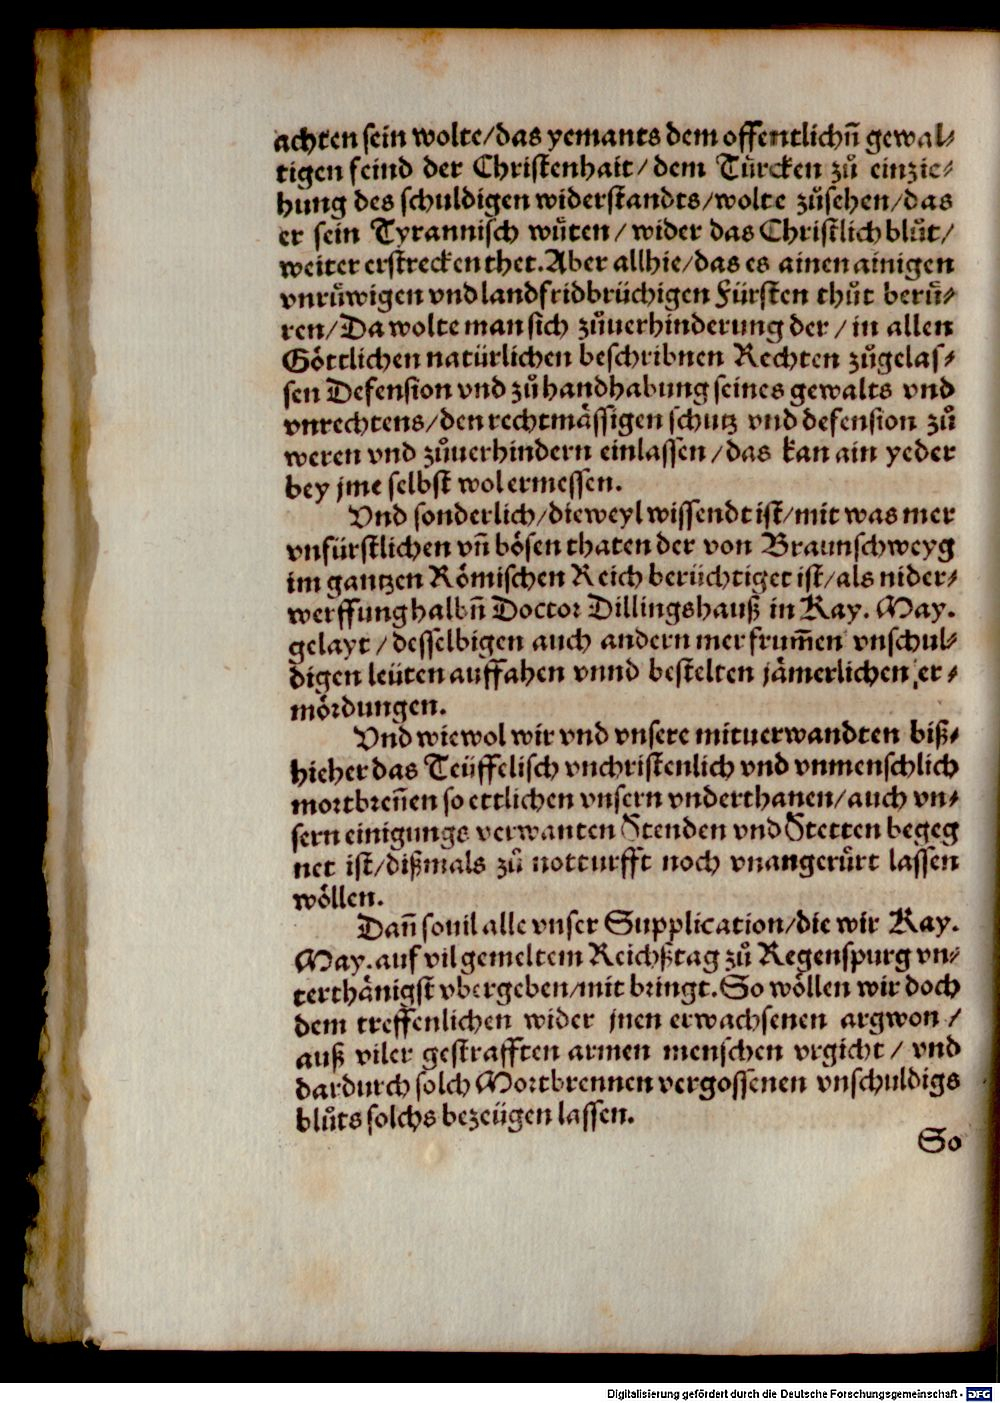 achten sein wolte/das yemants dem offentlichn̄ gewal⸗
tigen feind der Christenhait/dem Tuͤrcken zuͦ einzie⸗
hung des schuldigen widerstandts/wolte zuͦsehen/das
er sein Tyrannisch wuͤten/wider das Christlich bluͦt/
weiter erstrecken thet. Aber allhie/das es ainen ainigen
vnruͤwigen vnd landfridbrüchigen Fürsten thuͦt beruͤ⸗
ren/Da wolte man sich zuͦuerhinderung der/in allen
Goͤttlichen natürlichen beschribnen Rechten zuͦgelas⸗
sen Defension vnd zuͦ handhabung seines gewalts vnd
vnrechtens/den rechtmaͤssigen schutz vnd defension zuͦ
weren vnd zuͦuerhindern einlassen/das kan ain yeder
bey jme selbst wol ermessen.
Vnd sonderlich/dieweyl wissendt ist/mit was mer
vnfürstlichen vn̄ boͤsen thaten der von Braunschweyg
im gantzen Roͤmischen Reich berüchtiget ist/als nider⸗
werffung halbn̄ Doctor Dillingshauß in Kay. May.
gelayt/desselbigen auch andern mer frum̄en vnschul⸗
digen leüten auffahen vnnd bestelten jaͤmerlichen er⸗
moͤrdungen.
Vnd wiewol wir vnd vnsere mituerwandten biß⸗
hieher das Teüffelisch vnchristenlich vnd vnmenschlich
mortbren̄en so ettlichen vnsern vnderthanen/auch vn⸗
sern einigungs verwanten Stenden vnd Stetten begeg
net ist/dißmals zuͦ notturfft noch vnangeruͤrt lassen
woͤllen.
Dan̄ souil alle vnser Supplication/die wir Kay.
May. auf vilgemeltem Reichßtag zuͦ Regenspurg vn⸗
terthaͤnigst vbergeben/mit bringt. So woͤllen wir doch
dem treffenlichen wider jnen erwachsenen argwon/
auß viler gestrafften armen menschen vrgicht/vnd
dardurch solch Mortbrennen vergossenen vnschuldigs
bluͦts solchs bezeügen lassen.
So
Digitalisierung gefördert durch die Deutsche Forschungsgemeinschaft - DFG